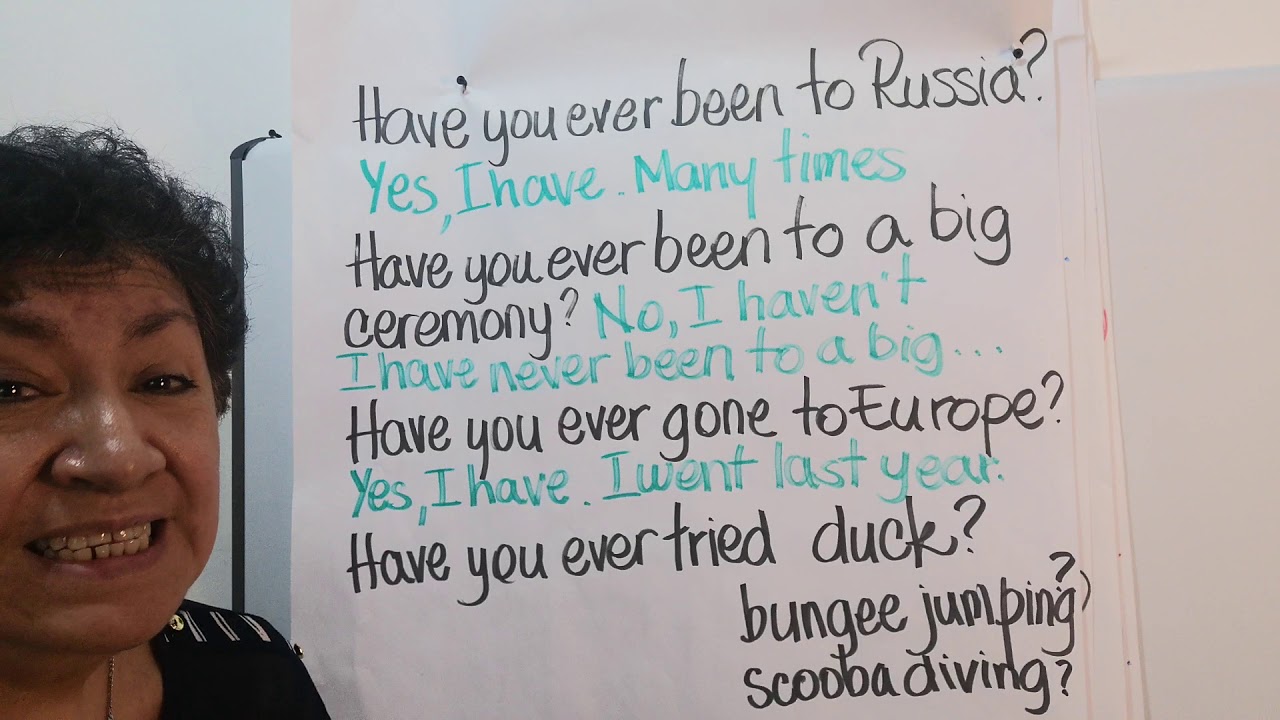 Have you ever been to Russia?
Yes, I have. Many times
Have you ever been to a big
ceremony? No, I haven't
I have never been to a big...
Have you ever gone to Europe?
Yes, I have. I went last year.
Have you ever tried duck?
bungee jumping?
scooba diving?